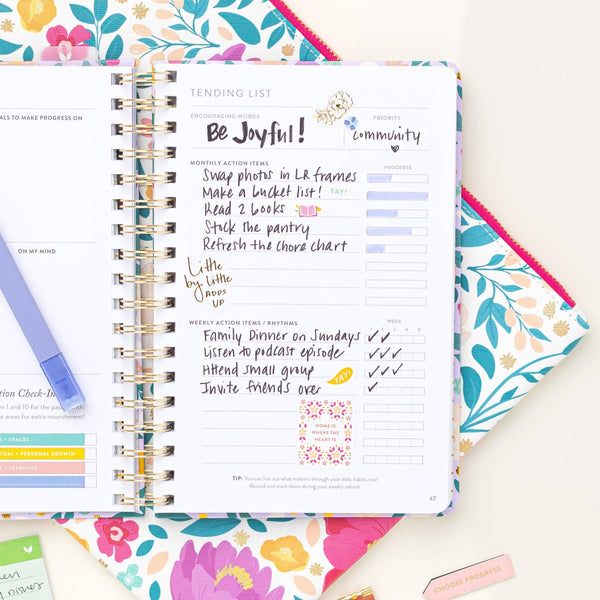 ALS TO MAKE PROGRESS ON
ON MY MIND
ction Check-In
on 1 and 10 for the past month
e areas for extra nourishment!
+ SPACES
TUAL + PERSONAL GROWTH
+ LEARNING
TENDING LIST
ENCOURAGING WORDS
Be Joyful!
PRIORITY
community
MONTHLY ACTION ITEMS
PROGRESS
Swap photos in LR frames
Make a bucket list! YAY!
Read 2 books
Stock the pantry
Refresh the chore chart
Little
by little
ADDS
UP
WEEKLY ACTION ITEMS / RHYTHMS
WEEK
1 2 3 4 5
Family Dinner on Sundays
Listen to podcast episode
Attend small group
Invite friends over YAY!
HOME IS
WHERE THE
HEART IS
TIP: You can live out what matters through your daily habits, too!
Record and track them during your weekly refresh.
67
hen
dishes
CHOOSE PROGRESS